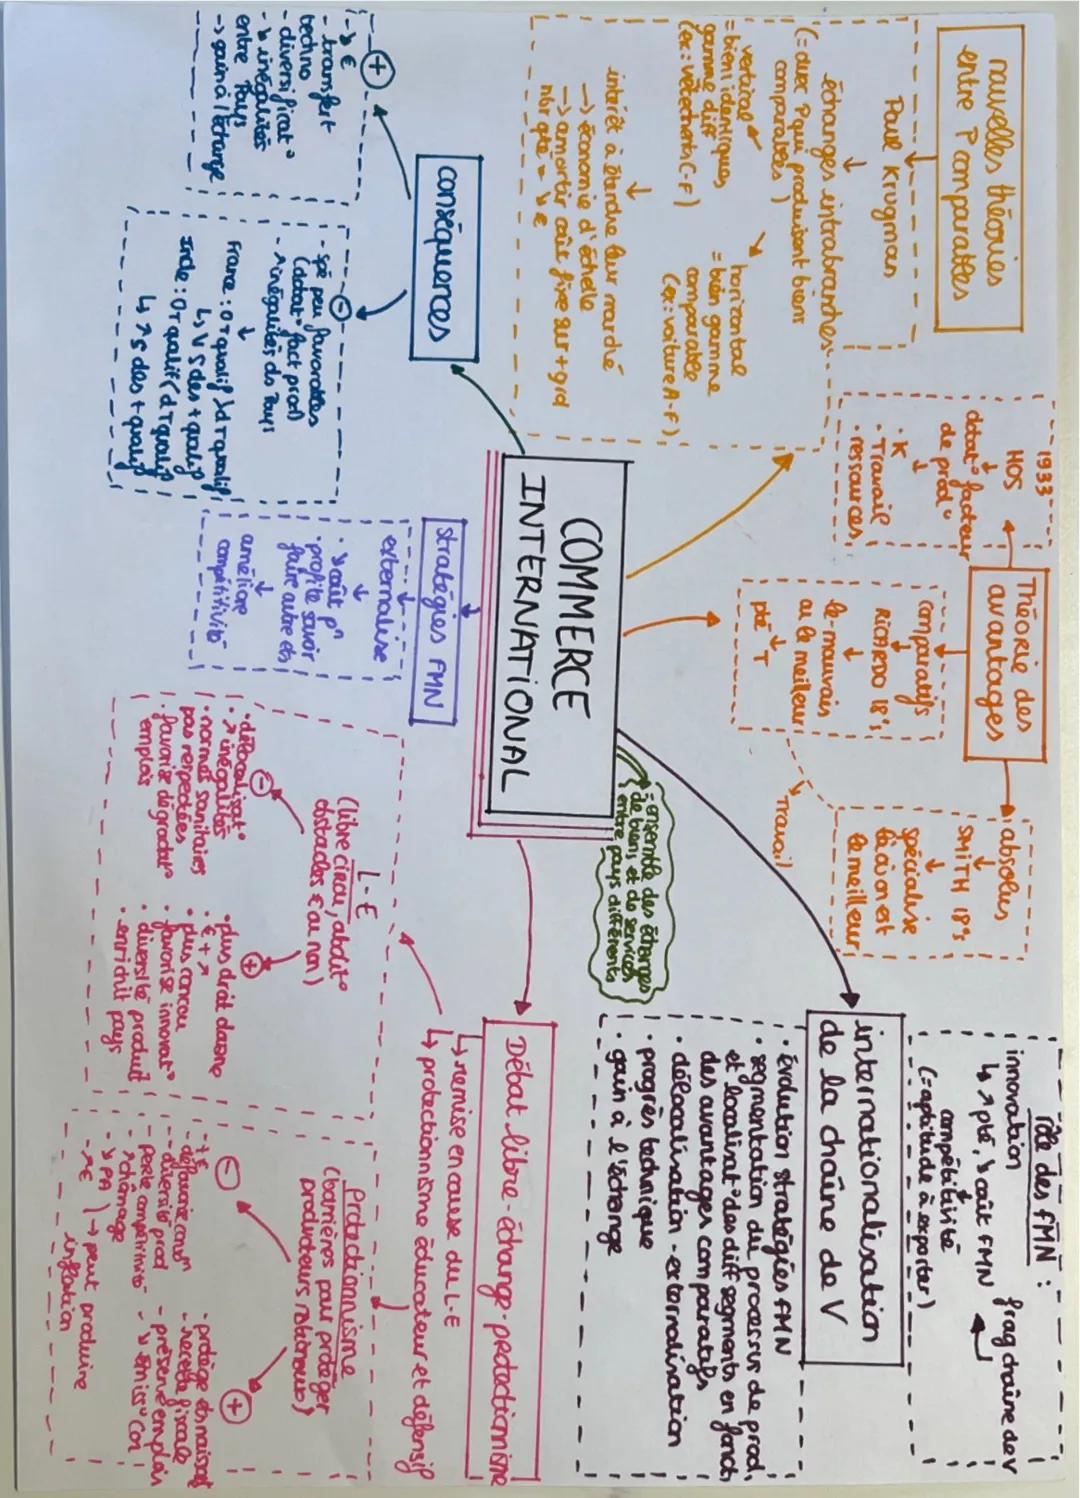 nouvelles théories
entre P comparables
Paul Krugman
échanges intrabranches
(= avec P qui produisent biens
comparables)
vertical
= bien identiques,
gamme diff
(ex: vêtements C-F)
horizontal
= bien gamme
comparable
(ex: voiture A-F)
intérêt à étendre leur marché
→ économie d'échelle
→ amortir coût fixe sur + grd
nbr qté = ↘ €
Théorie des
avantages
1933
HOS
dotat° facteur
de prod°
· K
· Travail
· ressources
comparatifs
RICARDO 18's
le - mauvais
ou le meilleur
pté T
Travail
absolus
SMITH 18's
spécialise
là où on est
le meilleur
rôle des FMN :
innovation
↳ ↗ pté, ↘ coût FMN
frag chaîne de V
compétitivité
(= aptitude à exporter)
internationalisation
de la chaîne de V
· évolution stratégies FMN
· segmentation du processus de prod,
et localisat° des diff segments en fonct,
des avantages comparatifs
· délocalisation - externalisation
· progrès technique
· gain à l'échange
COMMERCE
INTERNATIONAL
= ensemble des échanges
de biens et de services
entre pays différents
conséquences
+
- ↘ €
- transfert
techno
- diversificat°
- ↘ inégalités
entre Pays
→ gain à l'échange
-
- spé peu favorables
(dotat° fact prod)
- ↗ inégalités ds Pays
France : O T qualif > d T qualif
↳ ↘ S des + qualif
Inde : O T qualif < d T qualif
↳ ↗ S des + qualif
stratégies FMN
externalise
· ↘ coût p°
· profite savoir
faire autre ets
améliore
compétitivité
Débat libre-échange-protectionnisme
↳ remise en cause du L-E
↳ protectionnisme éducateur et défensif
L-E
(libre circu, abolit°
obstacles € ou non)
-
· délocalisat°
· ↗ inégalités
· normes sanitaires
pas respectées
· favorise dégradat°
emplois
+
· plus droit douane
· € + ↗
· plus concou
· favorise innovat°
· diversité produit
· enrichit pays
protectionnisme
(barrières pour protéger
producteurs nationaux)
-
- défavorise cons°
- diversité prod
- perte compétitivité
↗ chômage
- ↘ PA
- ↗ €
→ peut produire
inflation
+
· protège ets naissant
- recette fiscale
- préserve emplois
- ↘ émiss° Co2